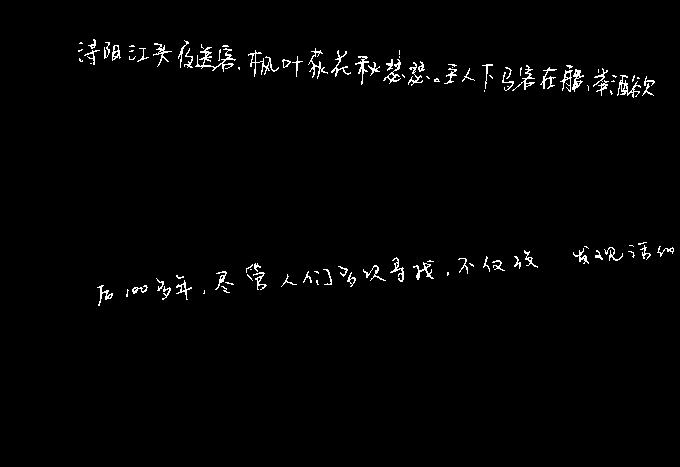 浔阳江头夜送客,枫叶荻花秋瑟瑟。主人下马客在船,举酒欲
后100多年,尽管人们多次寻找,不仅没 发现活的